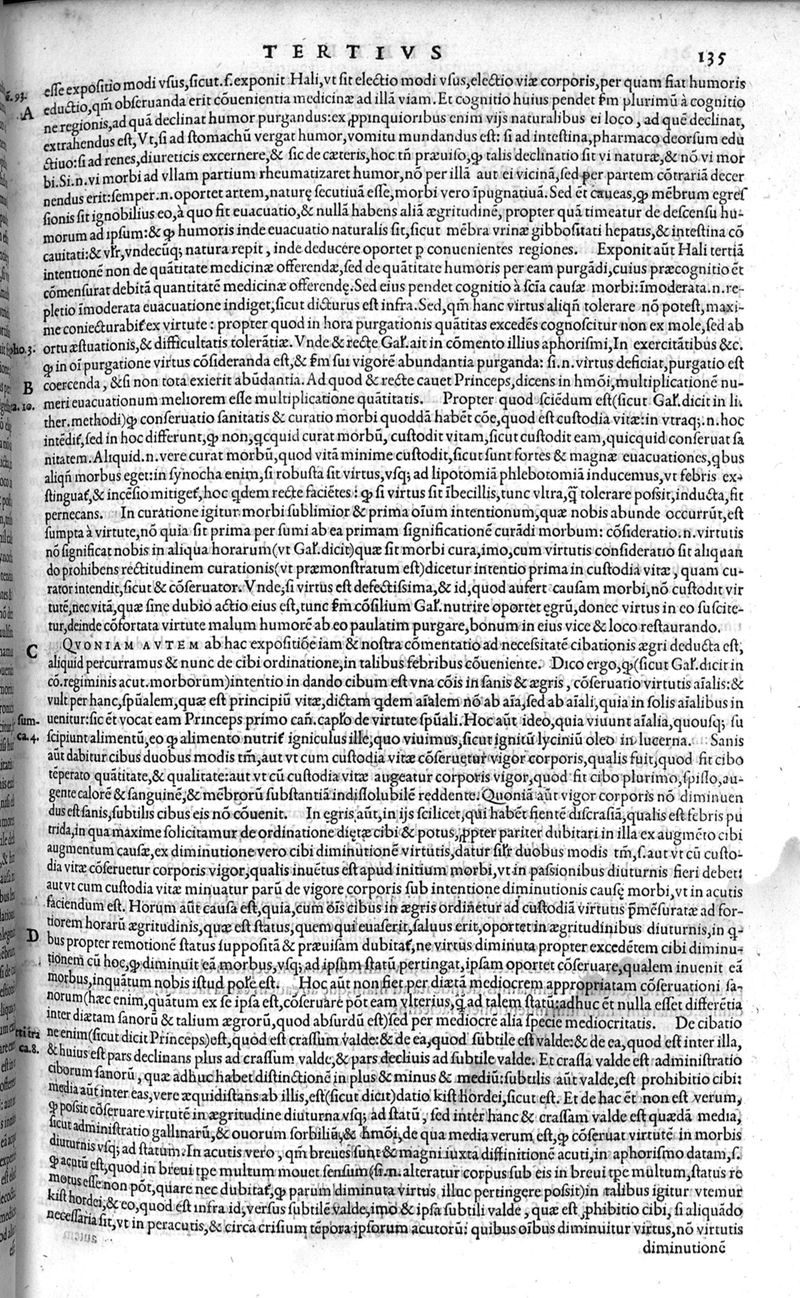 TERTIVS
135
esse expositio modi vsus, sicut .s. exponit Hali, vt sit electio modi vsus, electio viæ corporis, per quam fiat humoris
eductio, qm̃ obseruanda erit cōuenientia medicinæ ad illā viam. Et cognitio huius pendet s̃m plurimū à cognitio
ne regionis, ad quā declinat humor purgandus: ex ꝓpinquioribus enim vijs naturalibus ei loco, ad quē declinat,
extrahendus est, Vt, si ad stomachū vergat humor, vomitu mundandus est: si ad intestina, pharmaco deorsum edu
ctiuo: si ad renes, diureticis excernere, & sic de cæteris, hoc tñ præuiso, ꝙ talis declinatio sit vi naturæ, & nō vi mor
bi. Si .n. vi morbi ad vllam partium rheumatizaret humor, nō per illā aut ei vicinā, sed per partem cōtrariā decer
nendus erit: semper .n. oportet artem, naturę secutiuā esse, morbi vero īpugnatiuā. Sed et̃ caueas, ꝙ mēbrum egres
sionis sit ignobilius eo, à quo fit euacuatio, & nullā habens aliā ægritudinē, propter quā timeatur de descensu hu-
morum ad ipsum: & ꝙ humoris inde euacuatio naturalis sit, sicut mēbra vrinæ gibbositati hepatis, & intestina cō
cauitati: & vl̃r, vndecūq; natura repit, inde deducere oportet p conuenientes regiones. Exponit aūt Hali tertiā
intentionē non de quātitate medicinæ offerendæ, sed de quātitate humoris per eam purgādi, cuius præcognitio et̃
cōmensurat debitā quantitatē medicinæ offerendę. Sed eius pendet cognitio à scīa causæ morbi: īmoderata .n. re-
pletio īmoderata euacuatione indiget, sicut dicturus est infra. Sed, qm̃ hanc virtus aliqñ tolerare nō potest, maxi-
me coniecturabit̃ ex virtute: propter quod in hora purgationis quātitas excedēs cognoscitur non ex mole, sed ab
ortu æstuationis, & difficultatis tolerātiæ. Vnde & recte Gal̃. ait in cōmento illius aphorismi, In exercitātibus &c.
ꝙ in oī purgatione virtus cōsideranda est, & s̃m sui vigorē abundantia purganda: si .n. virtus deficiat, purgatio est
coercenda, & si non tota exierit abūdantia. Ad quod & recte cauet Princeps, dicens in hmōi, multiplicationē nu-
meri euacuationum meliorem esse multiplicatione quātitatis. Propter quod sciēdum est (sicut Gal̃. dicit in li.
ther. methodi) ꝙ conseruatio sanitatis & curatio morbi quoddā habēt cōe, quod est custodia vitæ: in vtraq; .n. hoc
intēdit̃, sed in hoc differunt, ꝙ non, qcquid curat morbū, custodit vitam, sicut custodit eam, quicquid conseruat sa
nitatem. Aliquid .n. vere curat morbū, quod vitā minime custodit, sicut sunt fortes & magnæ euacuationes, qbus
aliqñ morbus eget: in synocha enim, si robusta sit virtus, vsq; ad lipotomiā phlebotomiā inducemus, vt febris ex-
stinguat̃, & incēsio mitiget̃, hoc qdem recte faciētes: ꝙ si virtus sit ībecillis, tunc vltra, q̄ tolerare possit, inducta, fit
pernecans. In curatione igitur morbi sublimior & prima oīum intentionum, quæ nobis abunde occurrūt, est
sumpta à virtute, nō quia sit prima per sumi ab ea primam significationē curādi morbum: cōsideratio .n. virtutis
nō significat nobis in aliqua horarum (vt Gal̃. dicit) quæ sit morbi cura, imo, cum virtutis consideratio sit aliquan
do prohibens rectitudinem curationis (vt præmonstratum est) dicetur intentio prima in custodia vitæ, quam cu-
rator intendit, sicut & cōseruator. Vnde, si virtus est defectissima, & id, quod aufert causam morbi, nō custodit vir
tutē, nec vitā, quæ sine dubio actio eius est, tunc s̃m cōsilium Gal̃. nutrire oportet egrū, donec virtus in eo suscite-
tur, deinde cōfortata virtute malum humorē ab eo paulatim purgare, bonum in eius vice & loco restaurando.
QVONIAM AVTEM ab hac expositiōe iam & nostra cōmentatio ad necessitatē cibationis ægri deducta est,
aliquid percurramus & nunc de cibi ordinatione, in talibus febribus cōueniente. DICO ergo, ꝙ (sicut Gal̃. dicit in
cō. regiminis acut. morborum) intentio in dando cibum est vna cōis in sanis & ægris, cōseruatio virtutis aīalis: &
vult per hanc, spūalem, quæ est principiū vitæ, dictam qdem aīalem nō ab aīa, sed ab aīali, quia in solis aīalibus in
uenitur: sic et̃ vocat eam Princeps primo cañ. capl̃o de virtute spūali. Hoc aūt ideo, quia viuunt aīalia, quousq; su
scipiunt alimentū, eo ꝙ alimento nutrit̃ igniculus ille, quo viuimus, sicut ignitū lyciniū oleo in lucerna. Sanis
aūt dabitur cibus duobus modis tm̃, aut vt cum custodia vitæ cōseruetur vigor corporis, qualis fuit, quod fit cibo
tēperato quātitate, & qualitate: aut vt cū custodia vitæ augeatur corporis vigor, quod fit cibo plurimo, spisso, au-
gente calorē & sanguinē, & mēbrorū substantiā indissolubilē reddente. Quoniā aūt vigor corporis nō diminuen
dus est sanis, subtilis cibus eis nō cōuenit. In egris aūt, in ijs scilicet, qui habēt sientē discrasiā, qualis est febris pu
trida, in qua maxime solicitamur de ordinatione diętæ cibi & potus, ꝓpter pariter dubitari in illa ex augmēto cibi
augmentum causæ, ex diminutione vero cibi diminutionē virtutis, datur sil̃r duobus modis tm̃, s. aut vt cū custo-
dia vitæ cōseruetur corporis vigor, qualis inuētus est apud initium morbi, vt in passionibus diuturnis fieri debet:
aut vt cum custodia vitæ minuatur parū de vigore corporis sub intentione diminutionis causę morbi, vt in acutis
faciendum est. Horum aūt causa est, quia, cum oīs cibus in ægris ordinetur ad custodiā virtutis p̄mēsuratæ ad for-
tiorem horarū ægritudinis, quæ est status, quem qui euaserit, saluus erit, oportet in ægritudinibus diuturnis, in q-
bus propter remotionē status suppositā & præuisam dubitat̃, ne virtus diminuta propter excedētem cibi diminu-
tionem cū hoc, ꝙ diminuit eā morbus, vsq; ad ipsum statū pertingat, ipsam oportet cōseruare, qualem inuenit eā
morbus, inquātum nobis istud pol̃e est. Hoc aūt non fiet per diætā mediocrem appropriatam cōseruationi sa-
norum (hæc enim, quātum ex se ipsa est, cōseruare pōt eam vlterius, q̄ ad talem statū: adhuc et̃ nulla esset differētia
inter diætam sanorū & talium ægrorū, quod absurdū est) sed per mediocrē alia specie mediocritatis. De cibatio
ne enim (sicut dicit Princeps) est, quod est crassum valde: & de ea, quod subtile est valde: & de ea, quod est inter illa,
& huius est pars declinans plus ad crassum valde, & pars decliuis ad subtile valde. Et crassa valde est administratio
ciborum sanorū, quæ adhuc habet distinctionē in plus & minus & mediū: subtilis aūt valde, est prohibitio cibi:
media aūt inter eas, vere æquidistans ab illis, est (sicut dicit) datio kist hordei, sicut est. Et de hac et̃ non est verum,
ꝙ possit cōseruare virtutē in ægritudine diuturna vsq; ad statū, sed inter hanc & crassam valde est quædā media,
sicut administratio gallinarū, & ouorum sorbiliū, & hmōi, de qua media verum est, ꝙ cōseruat virtutē in morbis
diuturnis vsq; ad statum. In acutis vero, qm̃ breues sunt & magni iuxta diffinitionē acuti, in aphorismo datam, s.
ꝙ acutū est, quod in breui tpe multum mouet sensum (si .n. alteratur corpus sub eis in breui tpe multum, status re
motus esse non pōt, quare nec dubitat̃, ꝙ parum diminuta virtus illuc pertingere possit) in talibus igitur vtemur
kist hordei, & eo, quod est infra id, versus subtilē valde, imo & ipsa subtili valde, quæ est ꝓhibitio cibi, si aliquādo
necessaria sit, vt in peracutis, & circa crisium tēpora ipsorum acutorū: quibus oībus diminuitur virtus, nō virtutis
diminutionē
A
B
C
D